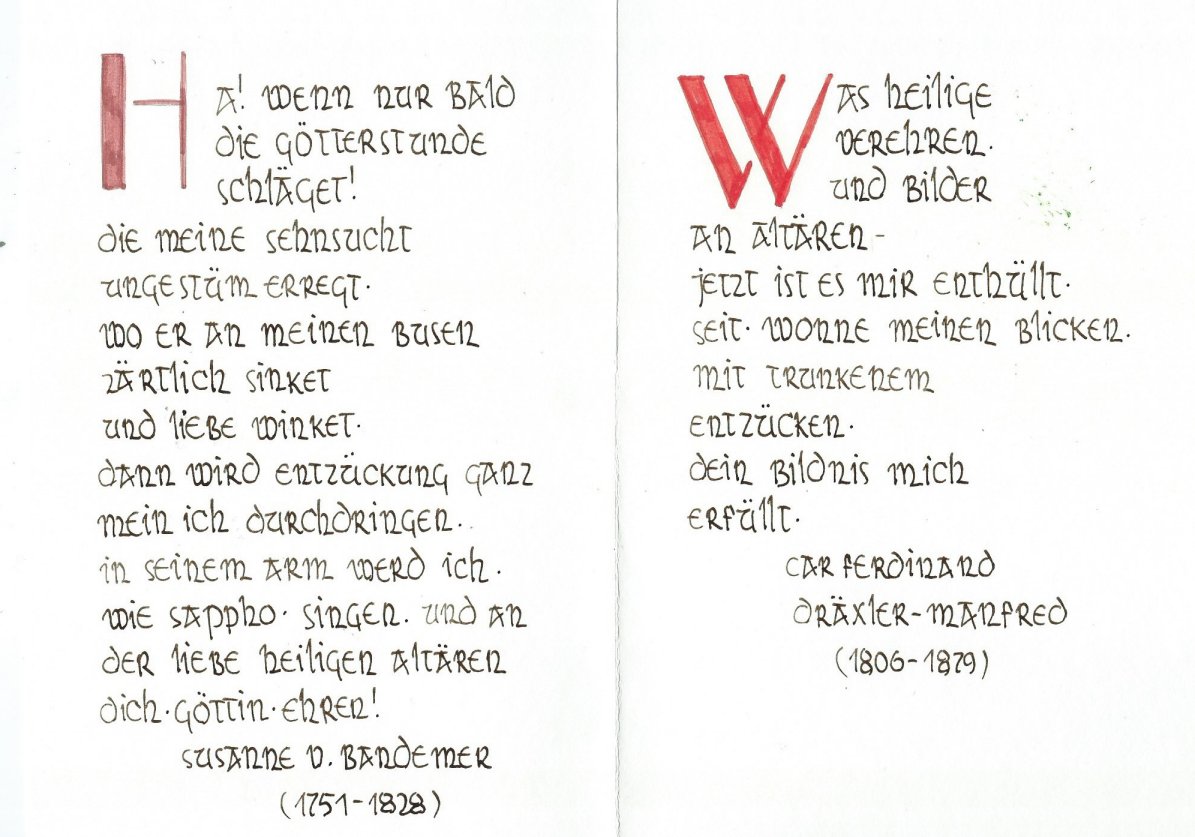 Ha! wenn nur bald
die Götterstunde
schläget!
die meine sehnsucht
ungestüm erregt.
wo er an meinen Busen
zärtlich sinket
und liebe winket.
dann wird entzückung ganz
mein ich durchdringen.
in seinem arm werd ich.
wie sappho. singen. und an
der liebe heiligen altären
dich. göttin. ehren!
susanne v. Bandemer
(1751-1828)
Was heilige
verehren.
und Bilder
an altären-
jetzt ist es mir enthüllt.
seit. wonne meinen Blicken.
mit trunkenem
entzücken.
dein Bildnis mich
erfüllt.
car ferdinand
dräxler-manfred
(1806-1879)